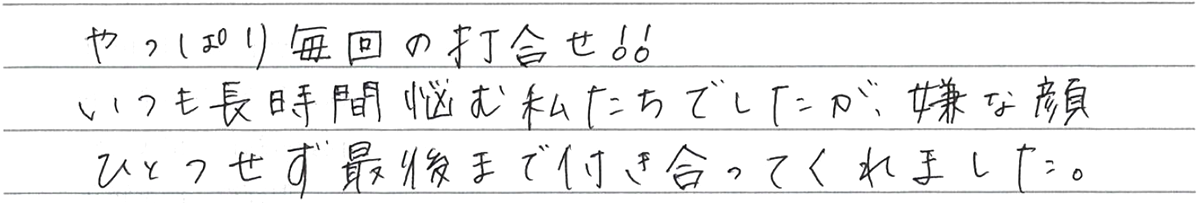 やっぱり毎回の打合せ!!
いつも長時間悩む私たちでしたが、嫌な顔
ひとつせず最後まで付き合ってくれました。